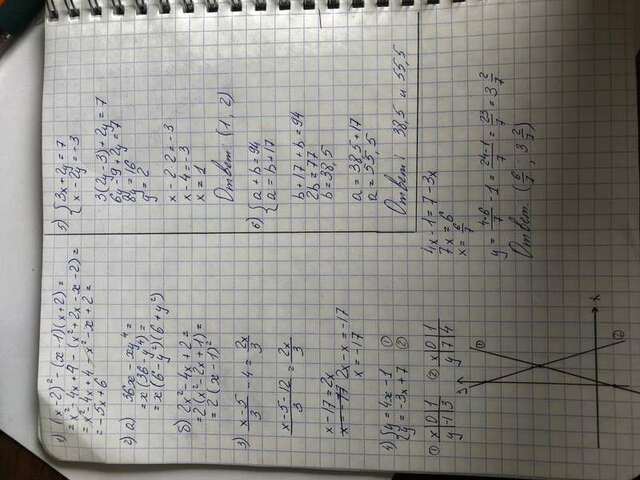 1) (x-2)² - (x-1)(x+2) =
= x² - 4x + 4 - (x² + 2x - x - 2) =
= x² - 4x + 4 - x² - x + 2 =
= -5x + 6
2) а) 36x - xy⁴ =
= x(36 - y⁴) =
= x(6 - y²)(6 + y²)
б) 2x² - 4x + 2 =
= 2(x² - 2x + 1) =
= 2(x - 1)²
3) (x-5)/3 - 4 = 2x/3
(x-5-12)/3 = 2x/3
x - 17 = 2x
x = -17 2x - x = -17
x = -17
4) { y = 4x - 1 ①
y = -3x + 7 ②
① x 0 1 ② x 0 1
y -1 3 y 7 4
y
①
x
②
5) { 3x + 2y = 7
x - 2y = -3
3(2y - 3) + 2y = 7
6y - 9 + 2y = 7
8y = 16
y = 2
x - 2·2 = -3
x - 4 = -3
x = 1
Ответ (1, 2)
6) { a + b = 94
a = b + 17
b + 17 + b = 94
2b = 77
b = 38,5
a = 38,5 + 17
a = 55,5
Ответ: 38,5 и 55,5
4x - 1 = 7 - 3x
7x = 8
x = 6/7
y = 4·6/7 - 1 = (24-1)/7 = 23/7 = 3 2/7
Ответ (6/7, 3 2/7)